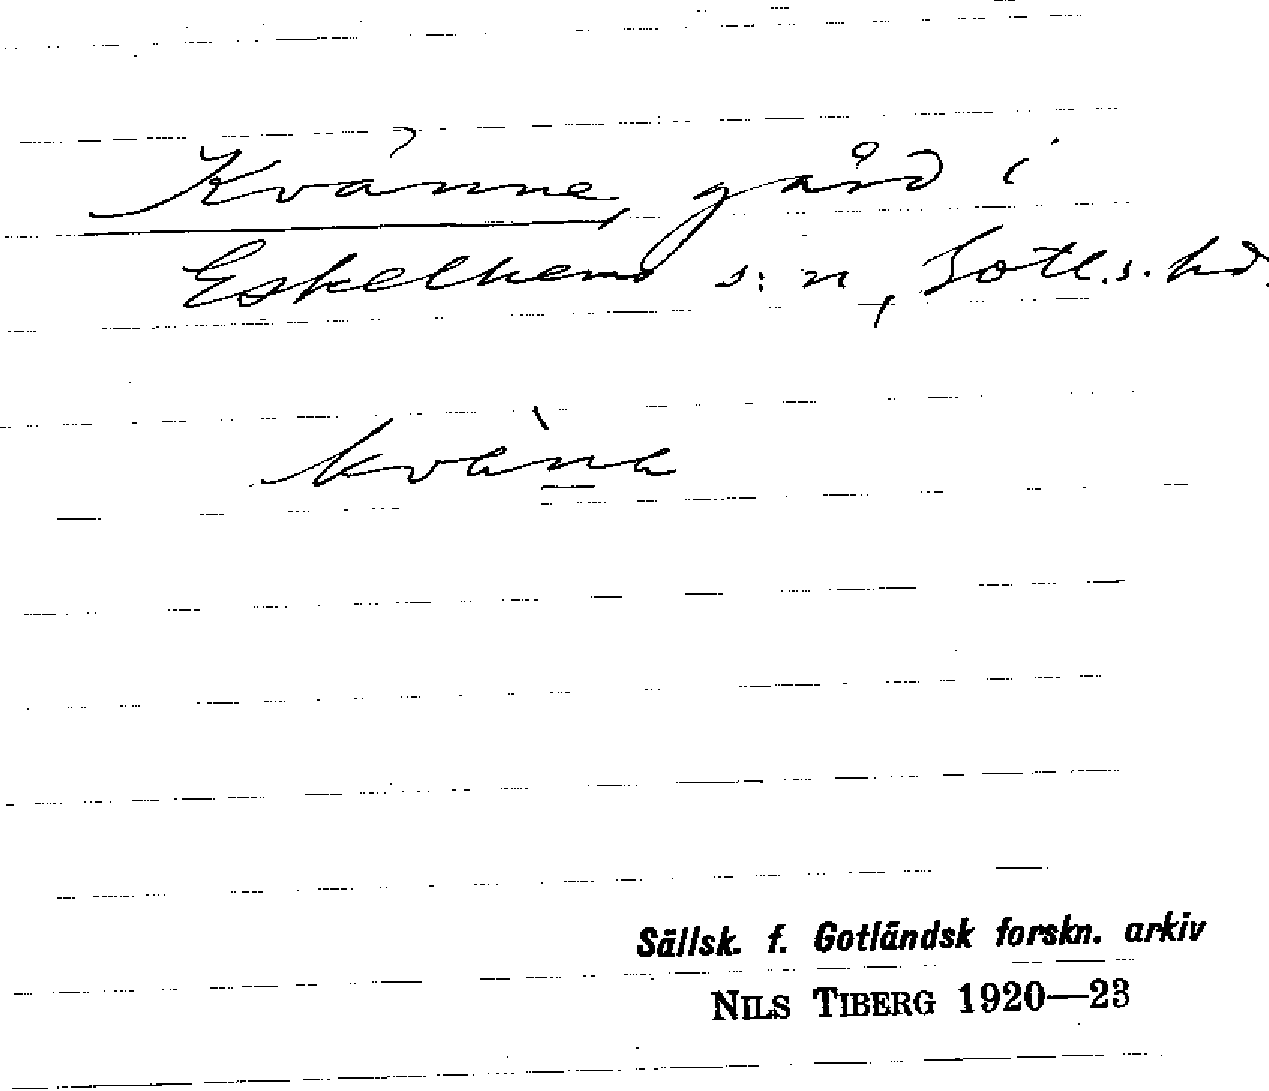 Kvänne, gård i
Eskelhems s:n, Gotl.s. hd.
kväna
Sällsk. f. Gotländsk forskn. arkiv
NILS TIBERG 1920—23